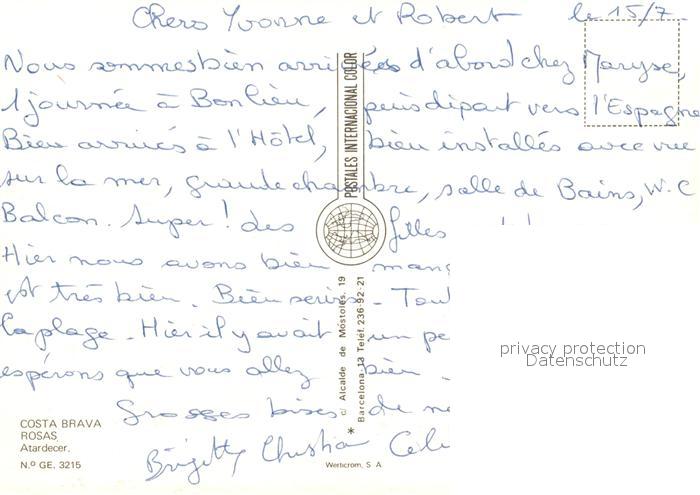 Chers Yvonne et Robert le 15/7.
Nous sommes bien arrivées d'abord chez Maryse,
1 journée à Bonlieu, puis départ vers l'Espagne
Bien arrivés à l'Hôtel, bien installés avec vue
sur la mer, grande chambre, salle de Bains, W.C
Balcon. Super! des filles
Hier nous avons bien mang
est très bien. Bien servis - Tou
la plage. Hier il y avait un pe
espérons que vous allez bien -
Grosses bises de no
Brigitte Christian Celi
POSTALES INTERNACIONAL COLOR
c/ Alcalde de Móstoles, 19
Barcelona-13 Teléf. 236-92-21
privacy protection
Datenschutz
COSTA BRAVA
ROSAS
Atardecer.
N.º GE. 3215
Werticrom, S A